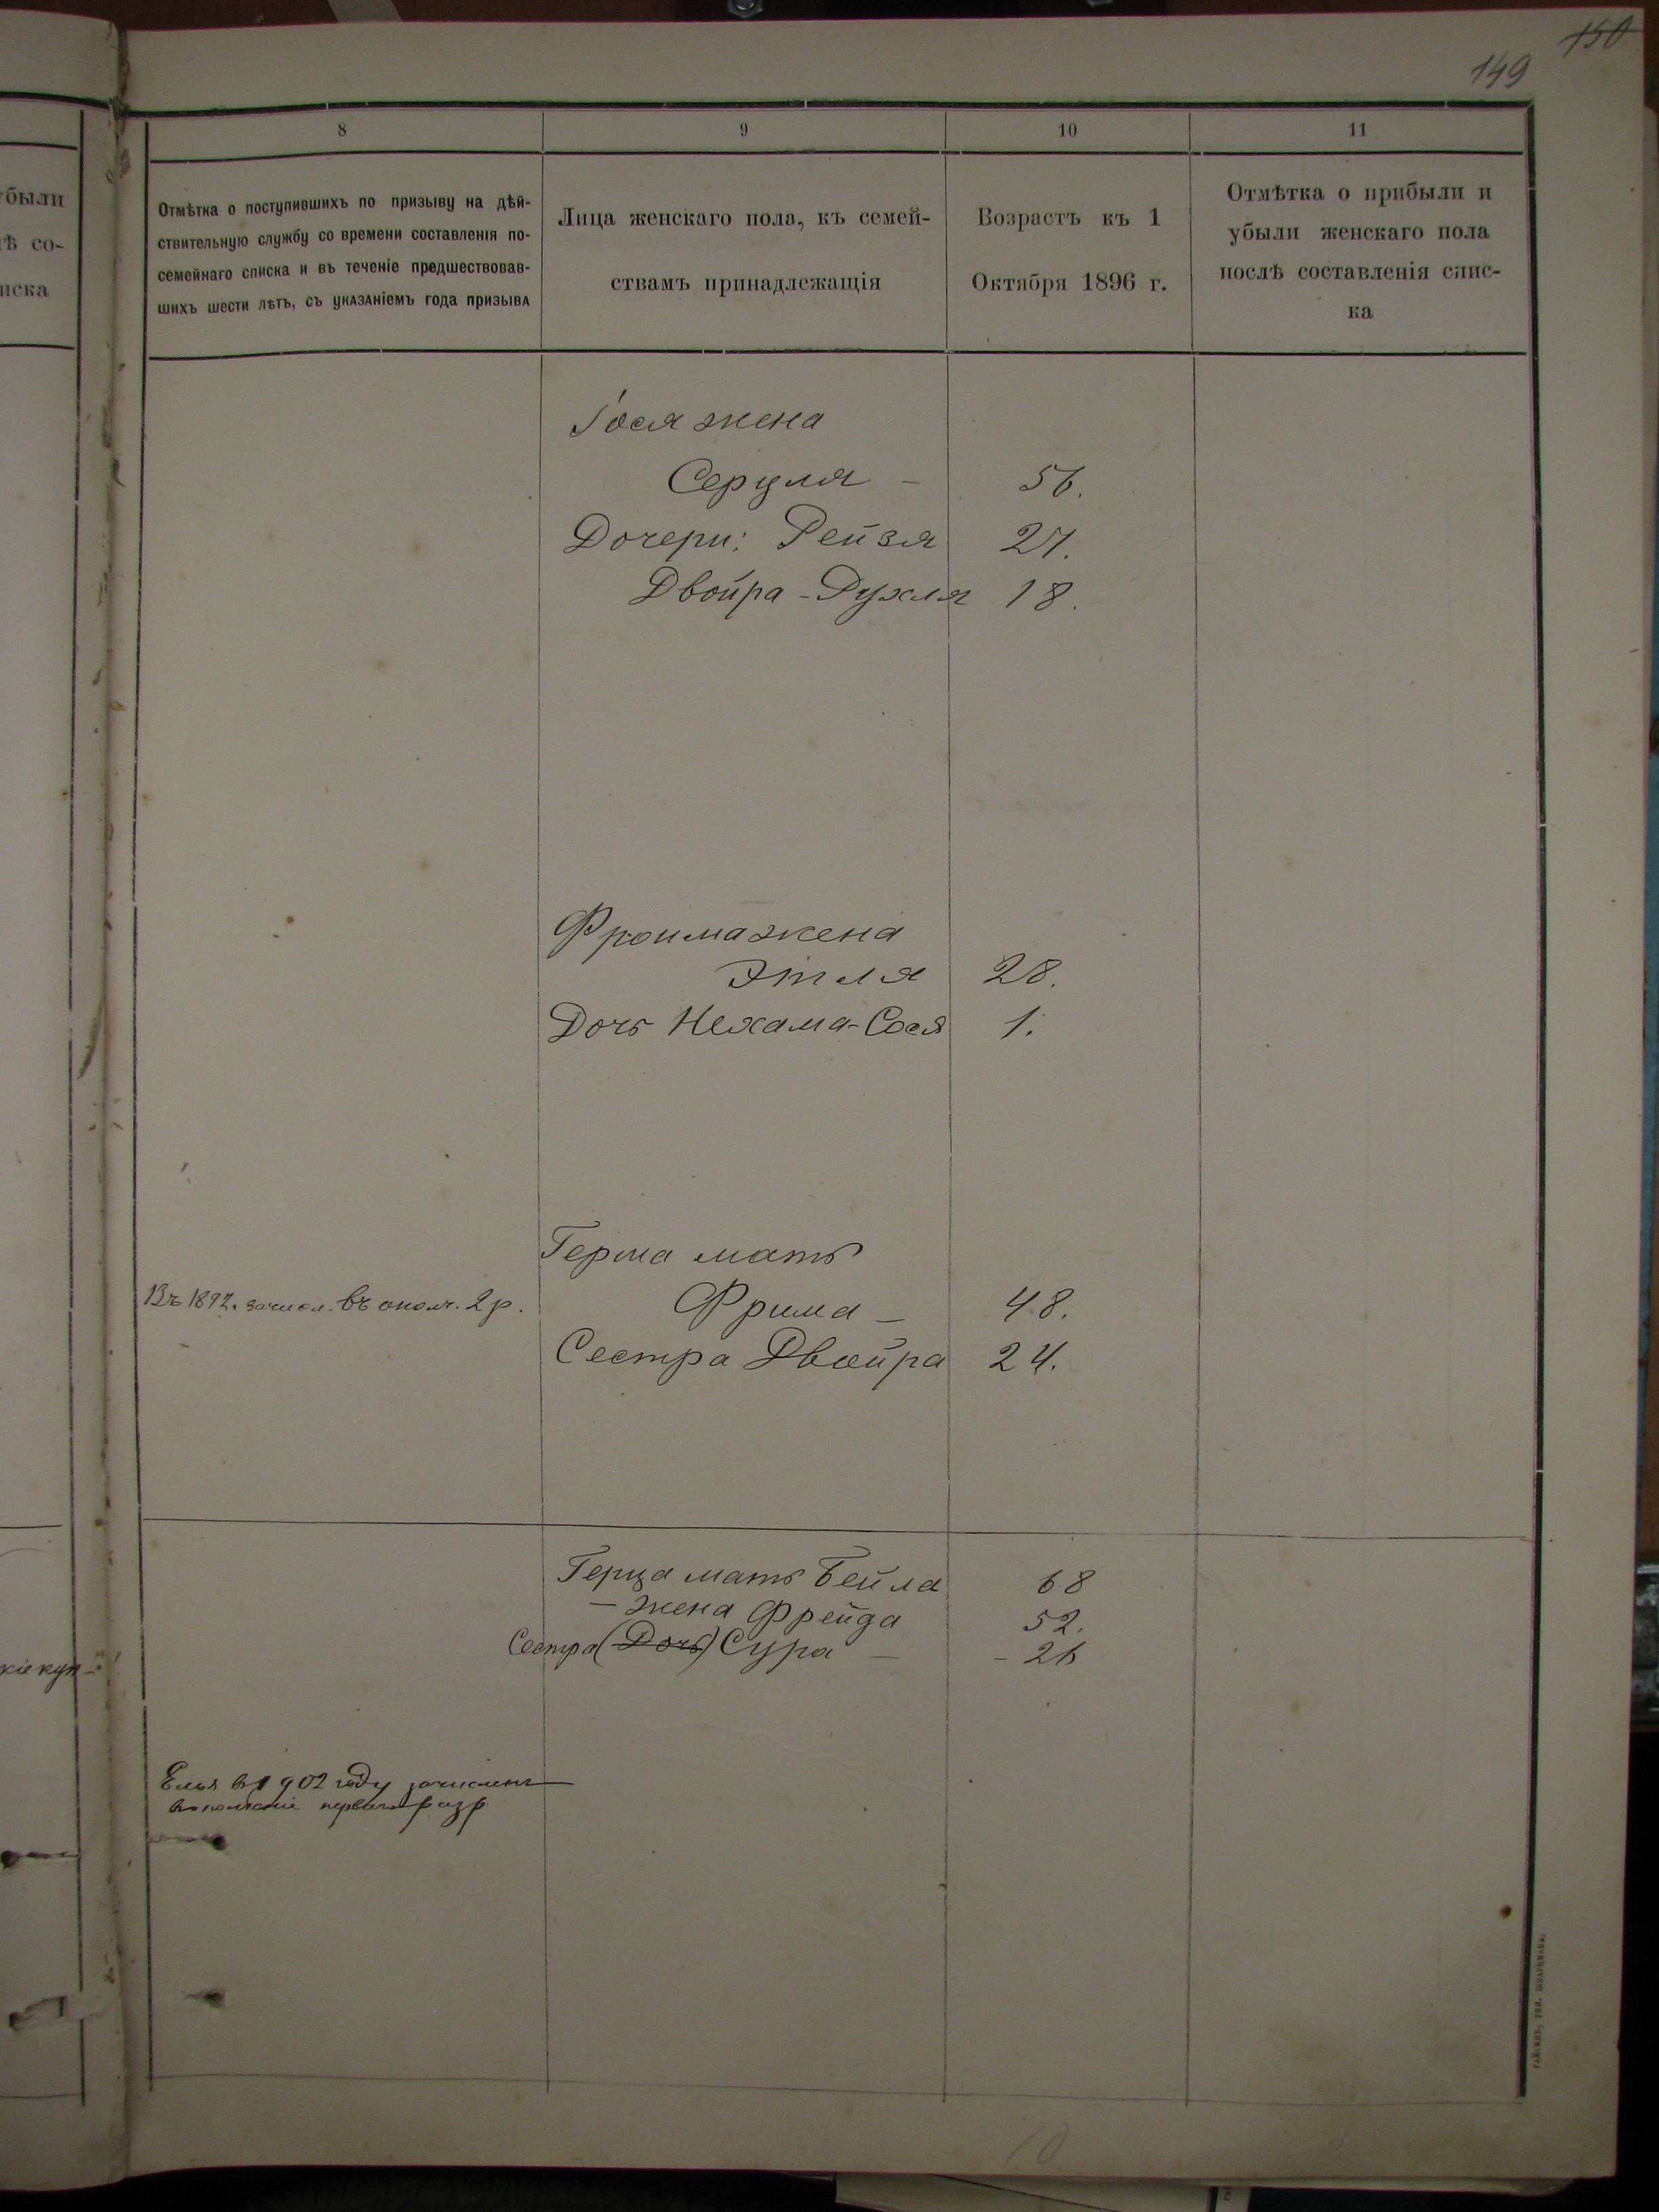 150
149
8
9
10
11
Отмѣтка о поступившихъ по призыву на дѣй-
ствительную службу со времени составленія по-
семейнаго списка и въ теченіе предшествовав-
шихъ шести лѣтъ, съ указаніемъ года призыва
Лица женскаго пола, къ семей-
ствамъ принадлежащія
Возрастъ къ 1
Октября 1896 г.
Отмѣтка о прибыли и
убыли женскаго пола
послѣ составленія спис-
ка
убыли
ѣ со-
иска
жена
Серуля – 56.
Дочери: Рейзя 27.
Двойра-Рухля 18.
Фроима жена
Этля 28.
Дочь Нехама-Сося 1.
Герша мать
Въ 1892. зачисл. въ ополч. 2 р.
Фрима – 48.
Сестра Двойра 24.
Герца мать Бейла 68
– жена Фрейда 52.
Сестра (Дочь) Сура – – 26
кіе куп-
Елья в 1902 году зачисленъ
в ополченіе перваго разр
ГАЙСИНЪ, ТИП. ШВАРЦМАНА.
10